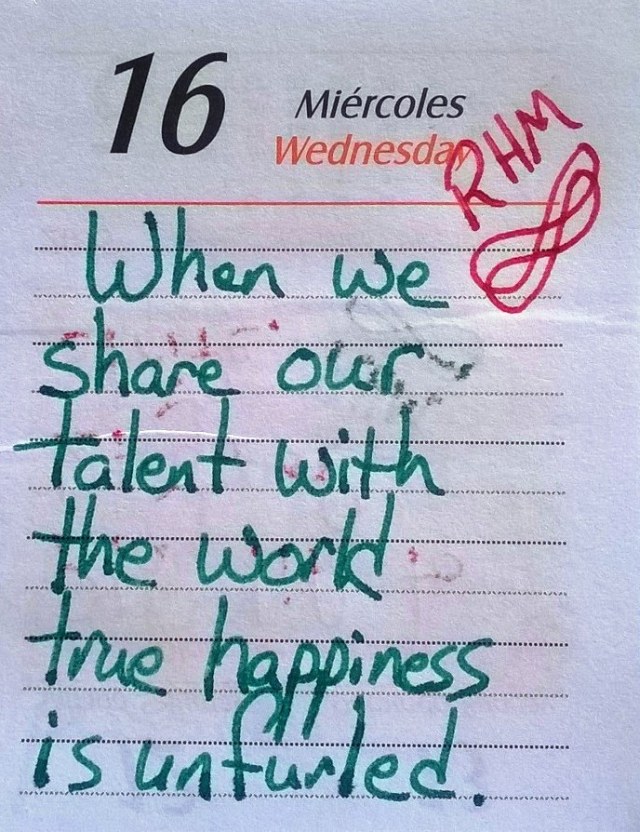 16
Miércoles
Wednesday
RHM
When we
share our
talent with
the world
true happiness
is unfurled.